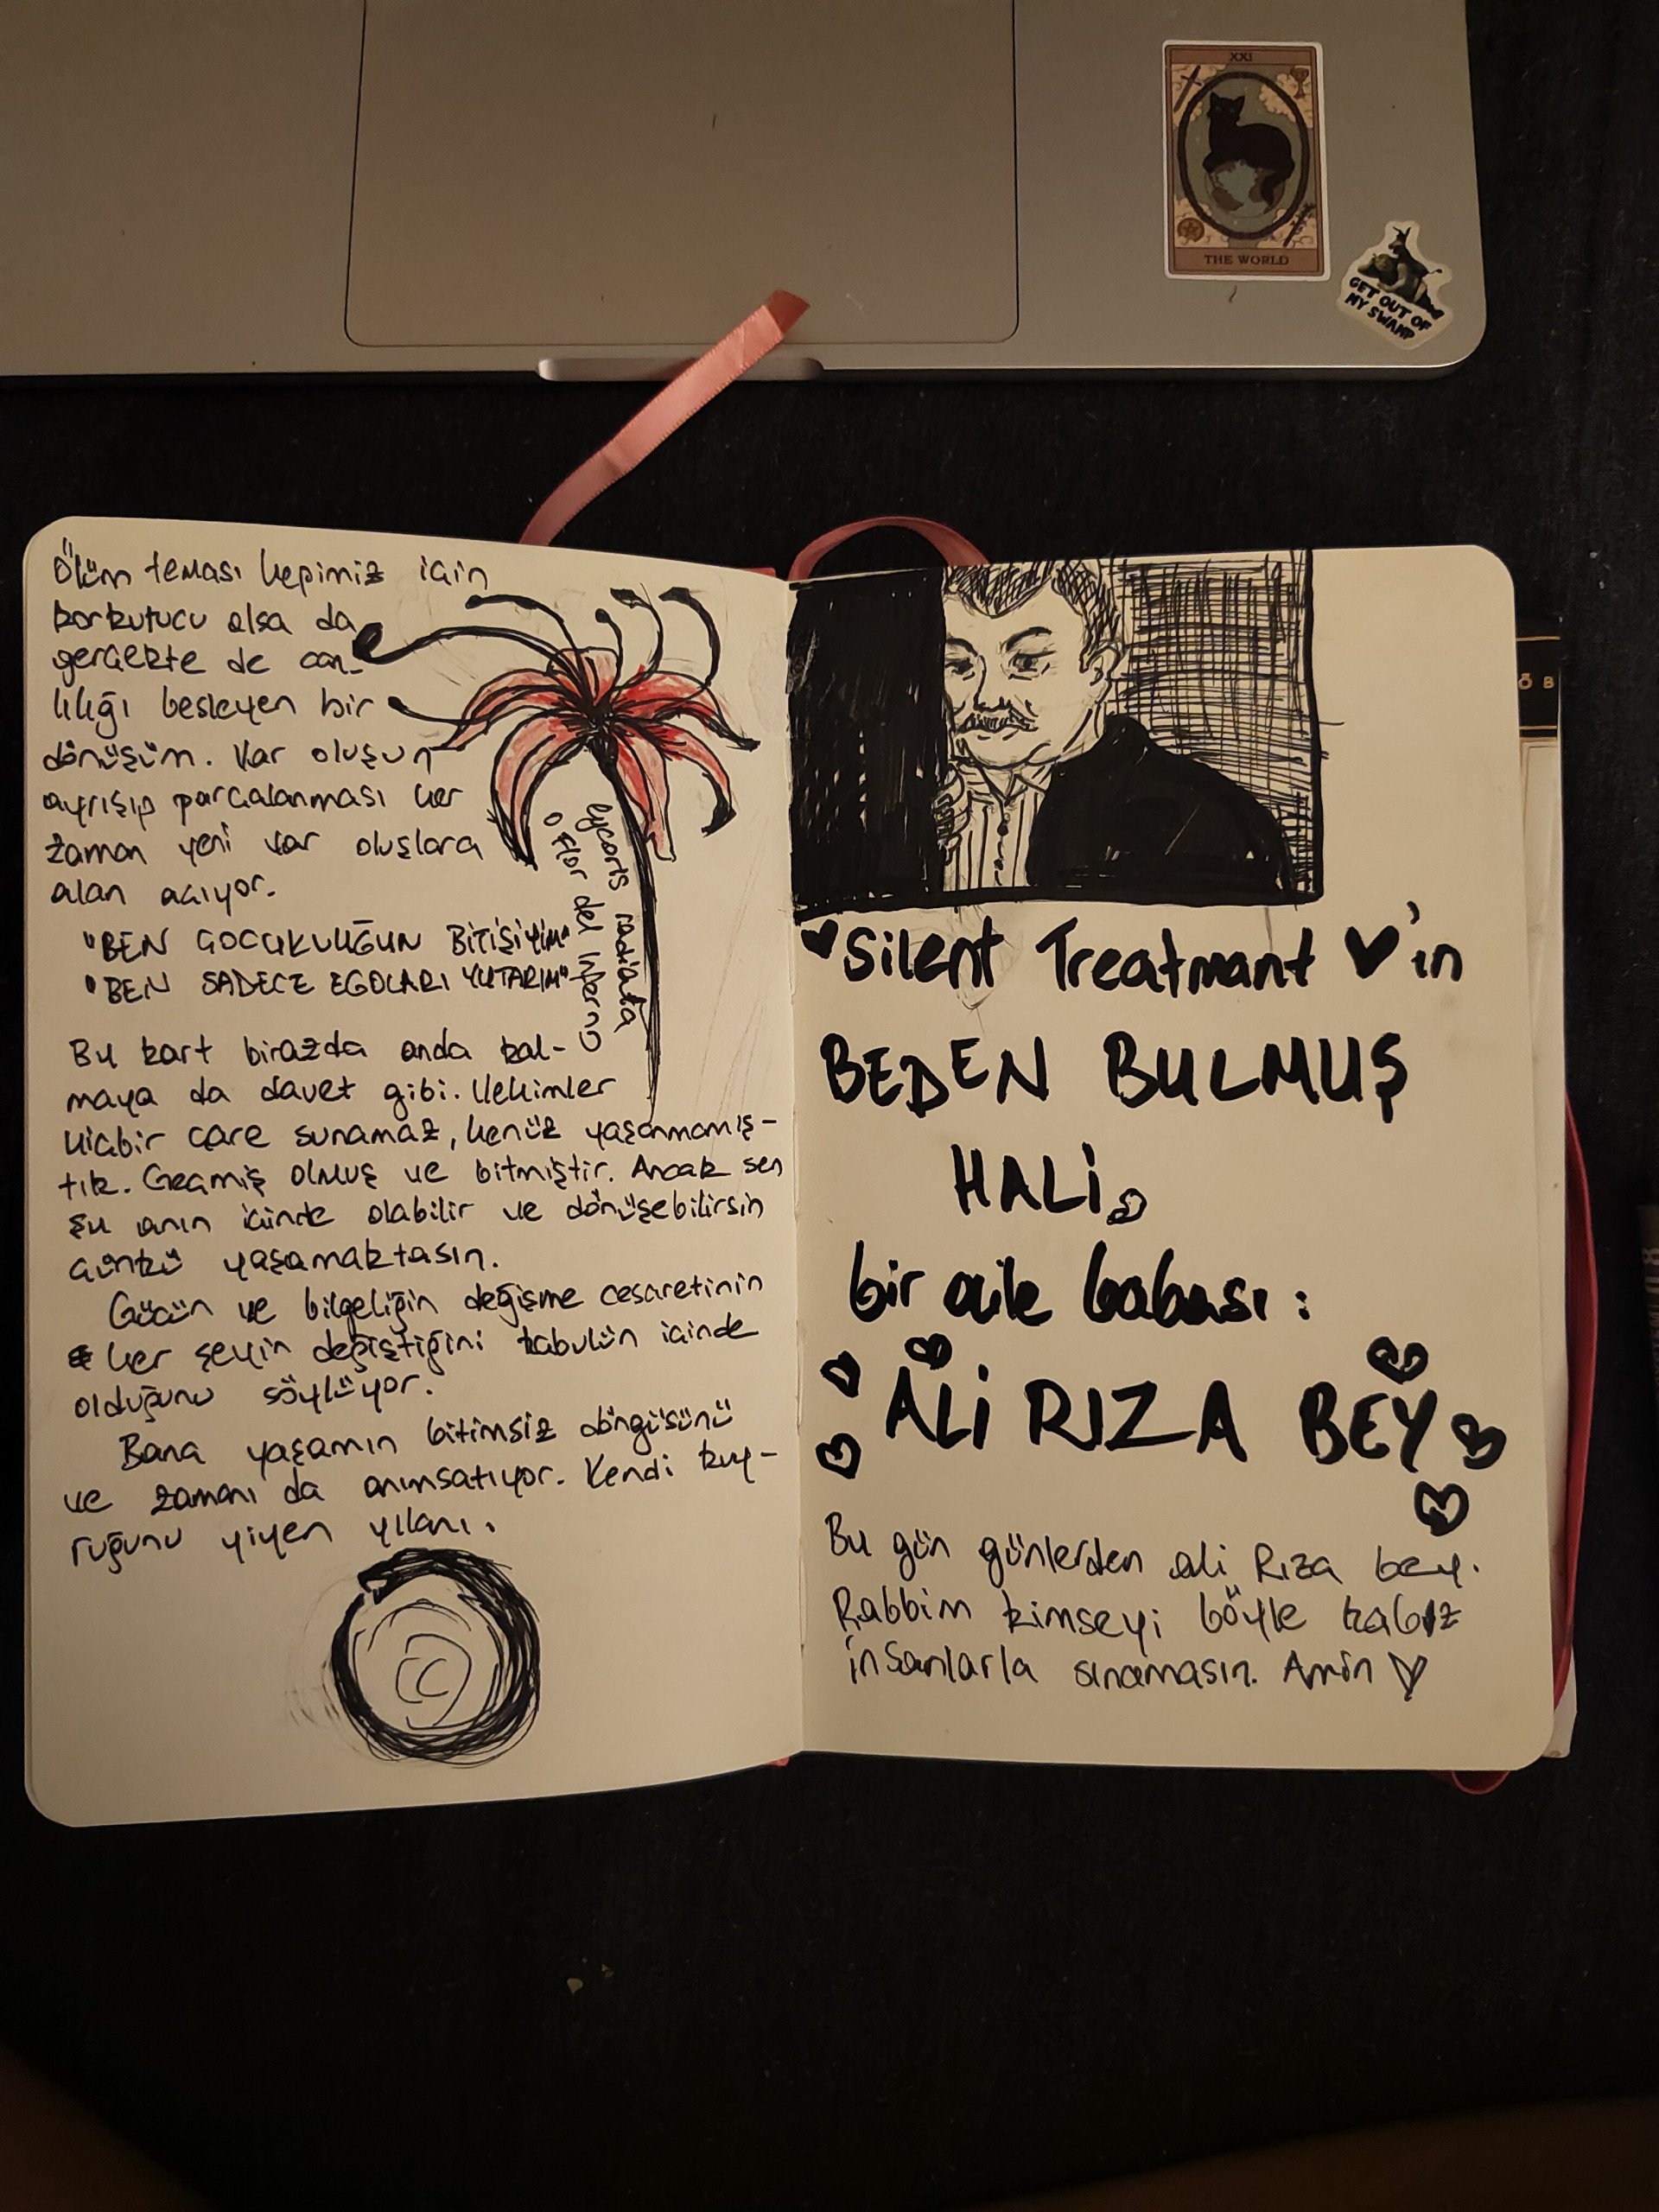 XXI
THE WORLD
GET OUT OF
MY SWAMP
Ölüm teması hepimiz için
korkutucu olsa da
gerçekte de can-
lılığı besleyen bir
dönüşüm. Var oluşun
ayrışıp parçalanması her
zaman yeni var oluşlara
alan açıyor.
"BEN ÇOCUKLUĞUN BİTİŞİYİM"
"BEN SADECE EGOLARI YUTARIM"
lycoris radiata
O Flor del Inferno
Bu kart birazda anda kal-
maya da davet gibi. Hekimler
hiçbir çare sunamaz, henüz yaşanmamış-
tır. Geçmiş olmuş ve bitmiştir. Ancak sen
şu anın içinde olabilir ve dönüşebilirsin
çünkü yaşamaktasın.
Gücün ve bilgeliğin değişme cesaretinin
her şeyin değiştiğini kabulün içinde
olduğunu söylüyor.
Bana yaşamın bitimsiz döngüsünü
ve zamanı da anımsatıyor. Kendi kuy-
ruğunu yiyen yılanı.
Silent Treatmant 'in
BEDEN BULMUŞ
HALİ
bir aile babası:
ALİ RIZA BEY
Bu gün günlerden ali Rıza bey.
Rabbim kimseyi böyle kabız
insanlarla sınamasın. Amin